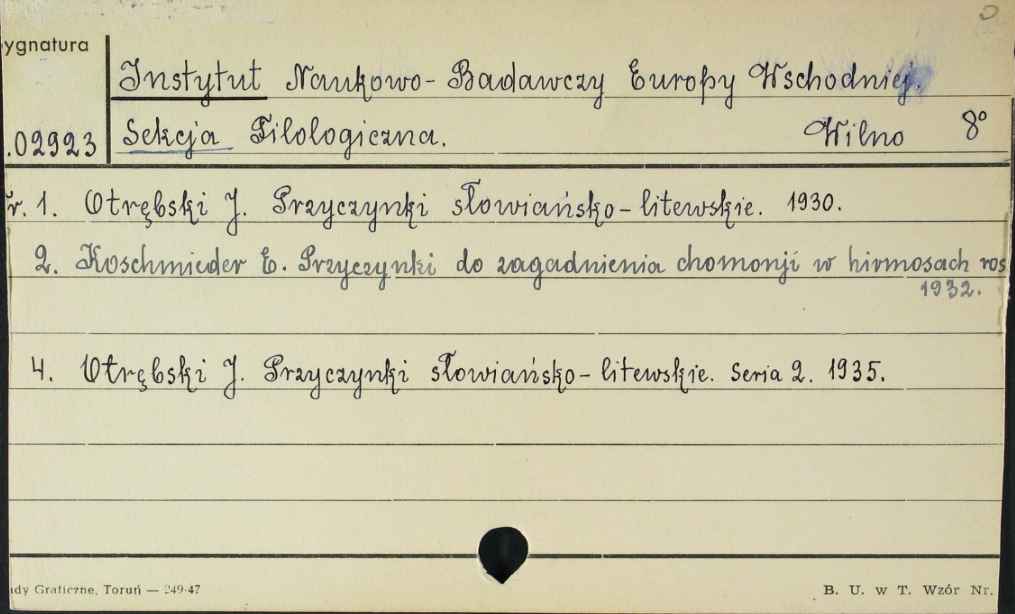 ygnatura
Instytut Naukowo-Badawczy Europy Wschodniej.
.02923 Sekcja Filologiczna. Wilno 8°
r. 1. Otrębski J. Przyczynki słowiańsko-litewskie. 1930.
2. Koschmieder E. Przyczynki do zagadnienia chomonji w hirmosach ros
1932.
4. Otrębski J. Przyczynki słowiańsko-litewskie. Seria 2. 1935.
ady Graficzne, Toruń — 249-47 B. U. w T. Wzór Nr.